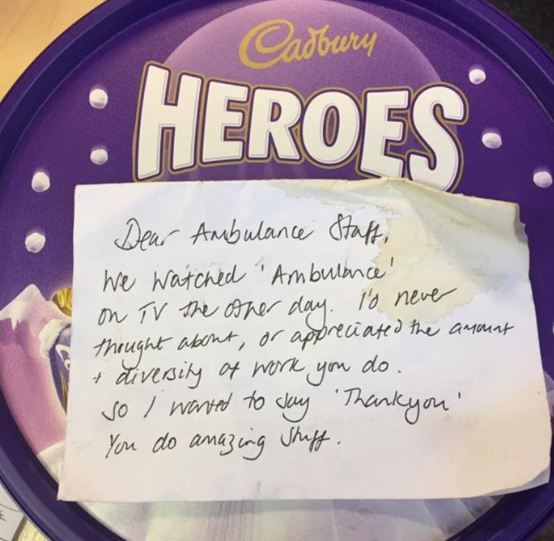 Cadbury
HEROES
Dear Ambulance Staff,
We watched 'Ambulance'
on TV the other day. I'd never
thought about, or appreciated the amount
+ diversity of work you do.
So I wanted to say 'Thankyou'
You do amazing stuff.